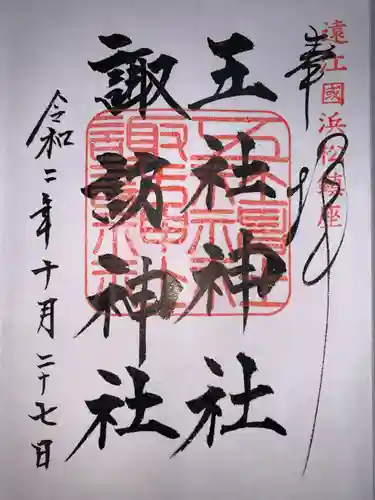 遠江國浜松鎮座
奉拝
五社神社
諏訪神社
令和二年十月二十七日
五社神社
諏訪神社